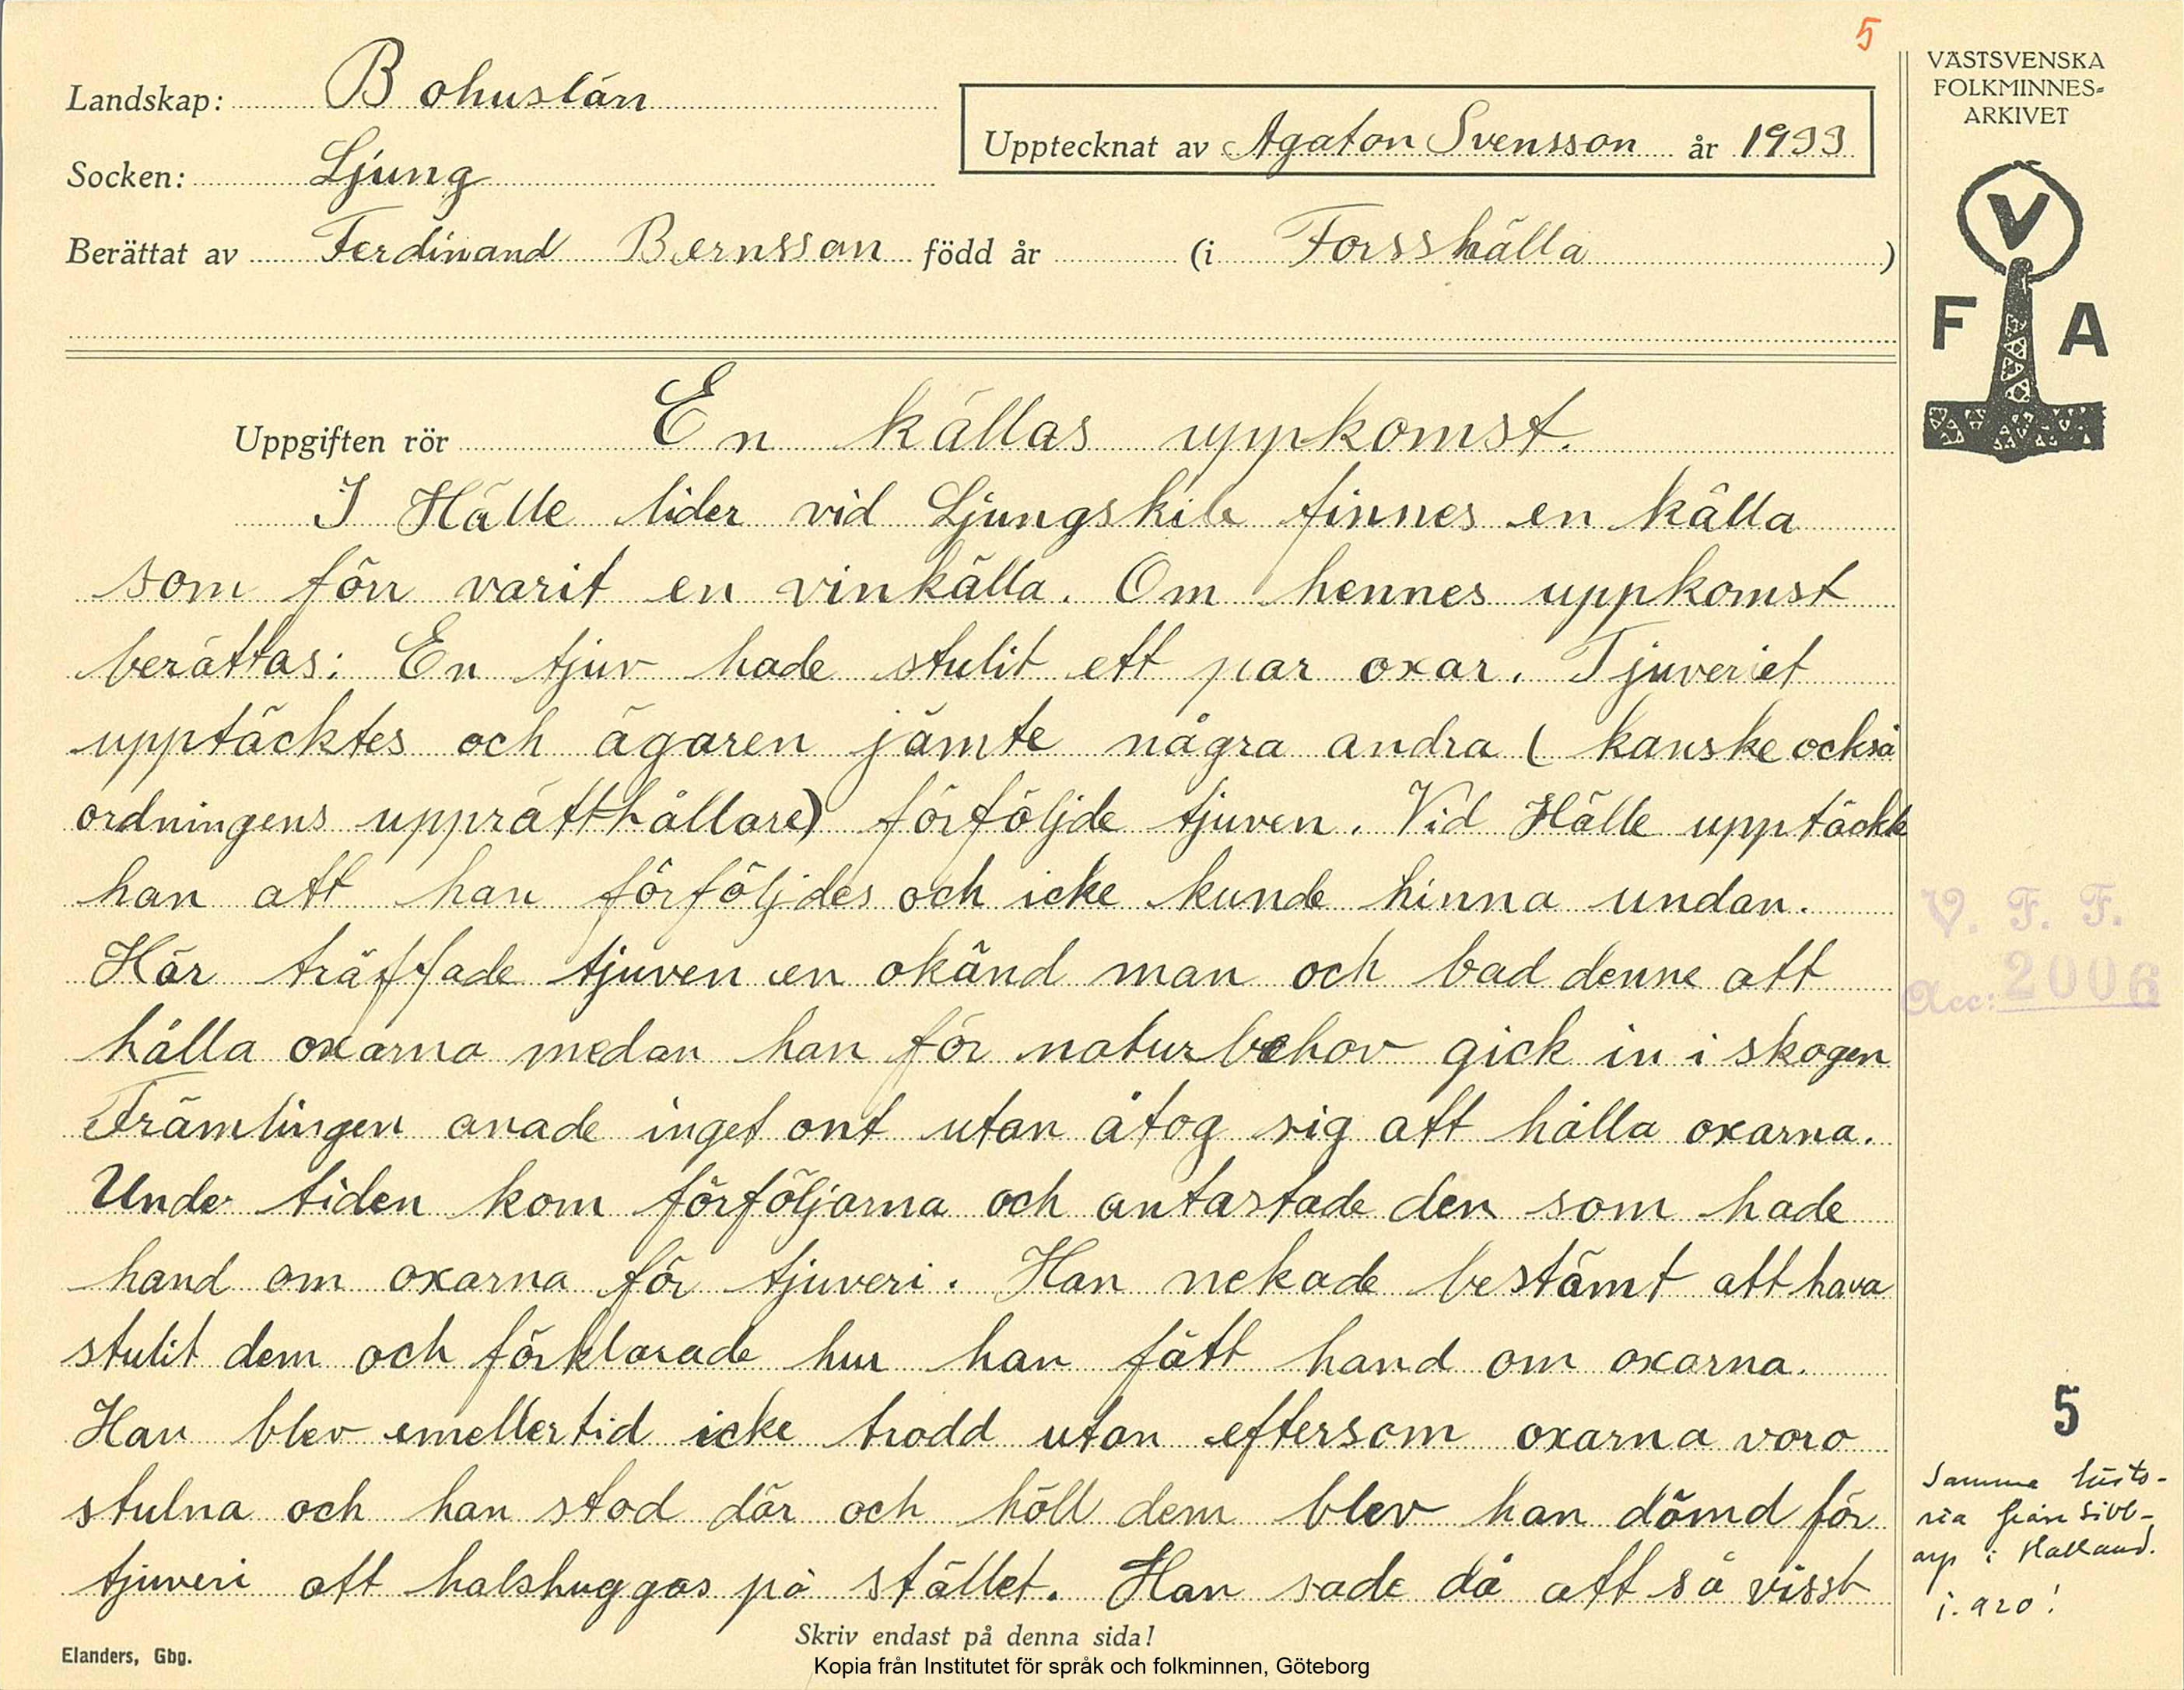 5
Landskap: Bohuslän
Socken: Ljung
Upptecknat av Agaton Svensson år 1933
Berättat av Ferdinand Bernsson född år (i Forsskälla )
Uppgiften rör En källas uppkomst.
I Hälle lider vid Ljungskile finnes en källa
som förr varit en vinkälla. Om hennes uppkomst
berättas: En tjuv hade stulit ett par oxar. Tjuveriet
upptäcktes och ägaren jämte några andra ( kanske också
ordningens upprätthållare) förföljde tjuven. Vid Hälle upptäckte
han att han förföljdes och icke kunde hinna undan.
Här träffade tjuven en okänd man och bad denne att
hålla oxarna medan han för naturbehov gick in i skogen
Främlingen anade inget ont utan åtog sig att hålla oxarna.
Under tiden kom förföljarna och antastade den som hade
hand om oxarna för tjuveri. Han nekade bestämt att hava
stulit dem och förklarade hur han fått hand om oxarna.
Han blev emellertid icke trodd utan eftersom oxarna voro
stulna och han stod där och höll dem blev han dömd för
tjuveri att halshuggas på stället. Han sade då att så visst
Skriv endast på denna sida!
Elanders, Gbg.
Kopia från Institutet för språk och folkminnen, Göteborg
VÄSTSVENSKA
FOLKMINNES-
ARKIVET
V
F A
V. F. F.
Acc: 2006
5
Samma histo-
ria från
i Halland.